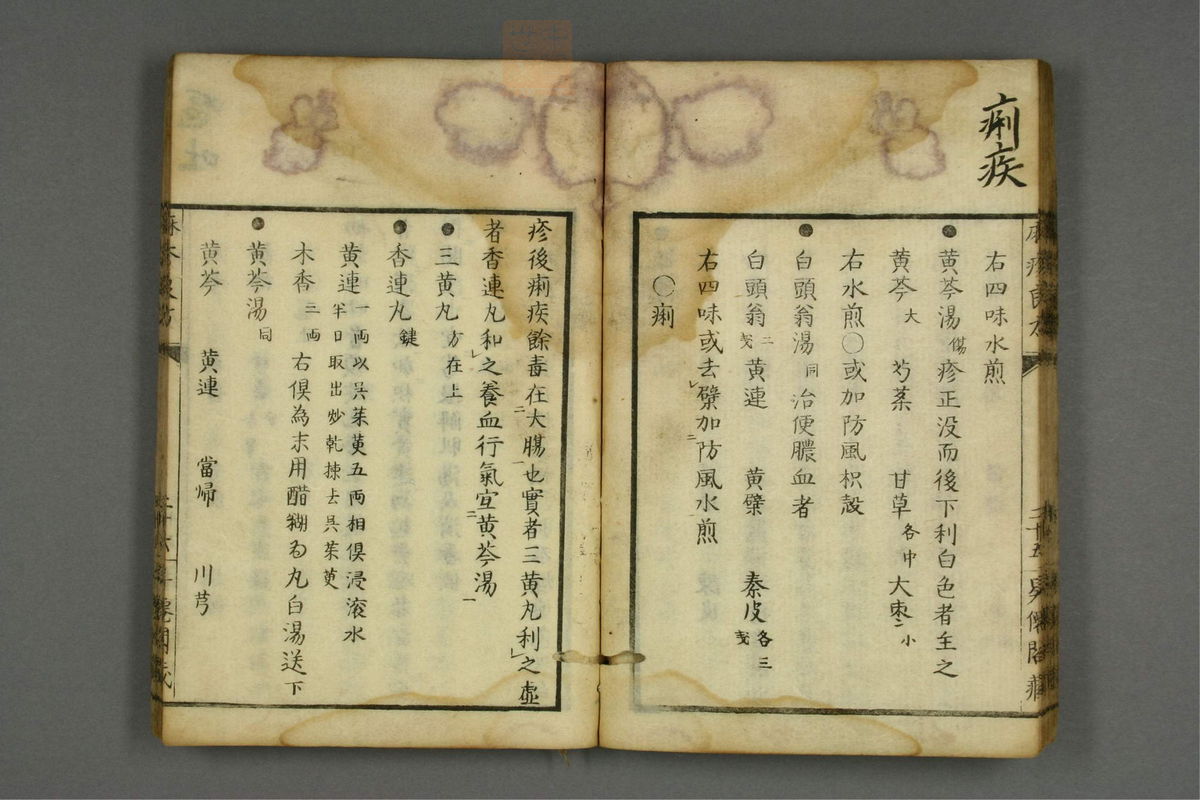 痢疾
右四味水煎
黄芩湯 傷 疹正没而後下利白色者主之
黄芩 大 芍薬 甘草 各中 大棗 小
右水煎〇或加防風枳殻
白頭翁湯 同 治便膿血者
白頭翁 二戔 黄連 黄檗 秦皮 各三戔
右四味或去檗加防風水煎
〇痢
疹後痢疾餘毒在大腸也實者三黄丸利之虚
者香連丸和之養血行氣宜黄芩湯
三黄丸 方在上
香連丸 鍵
黄連 一両以呉茱萸五両相倶浸滚水
半日取出炒乾揀去呉茱萸
木香 二両 右倶為末用醋糊為丸白湯送下
黄芩湯 同
黄芩 黄連 當帰 川芎